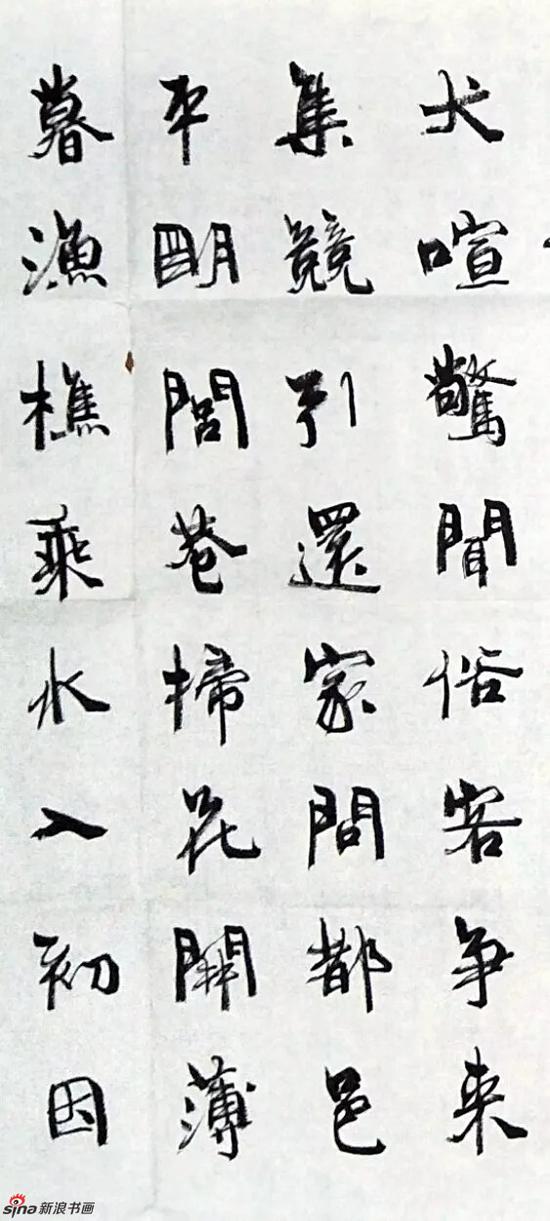 犬喧驚聞俗客争来
集競引還家問都邑
平明閭巷掃花開薄
暮漁樵乘水入初因
sina新浪书画